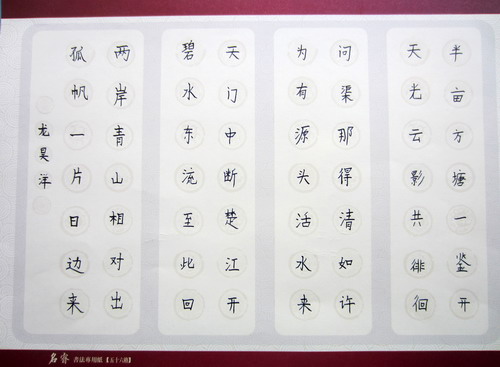 半亩方塘一鉴开
天光云影共徘徊
问渠那得清如许
为有源头活水来
天门中断楚江开
碧水东流至此回
两岸青山相对出
孤帆一片日边来
龙昊洋
名睿 書法專用紙【五十六格】